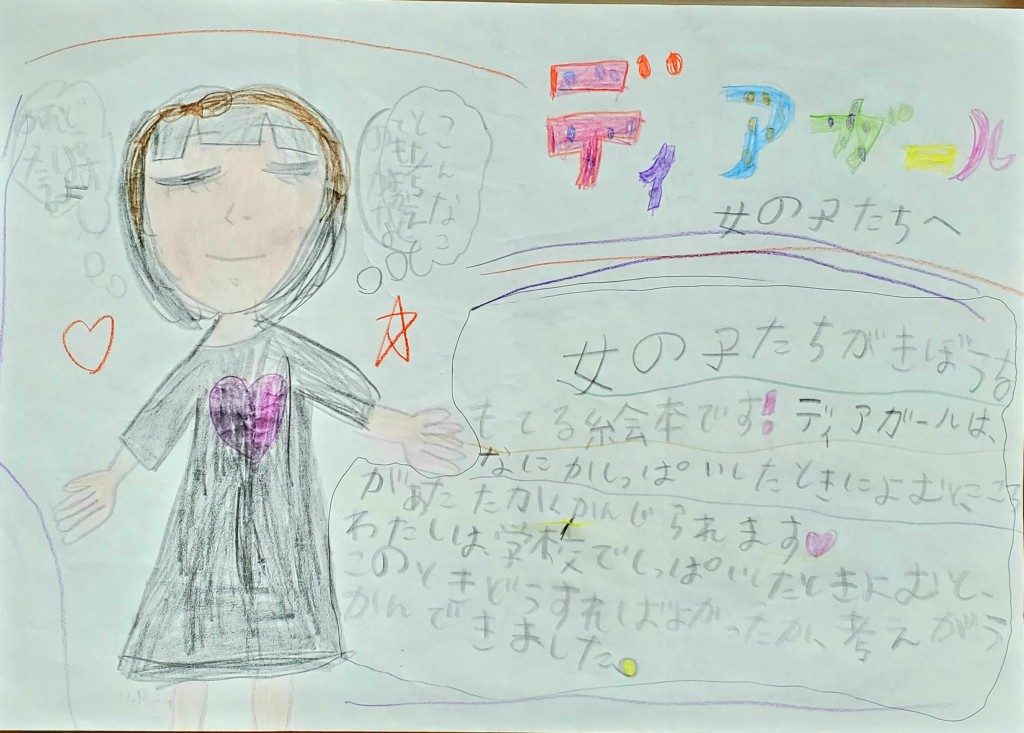 ディアガール
女の子たちへ
こんなこ
女の子たちがきぼうを
もてる絵本です!ディアガールは、
なにかしっぱいしたときによむと、こころ
があたたかくかんじられます
わたしは、学校でしっぱいしたときよむと、
このときどうすればよかったか、考えがう
かんできました。